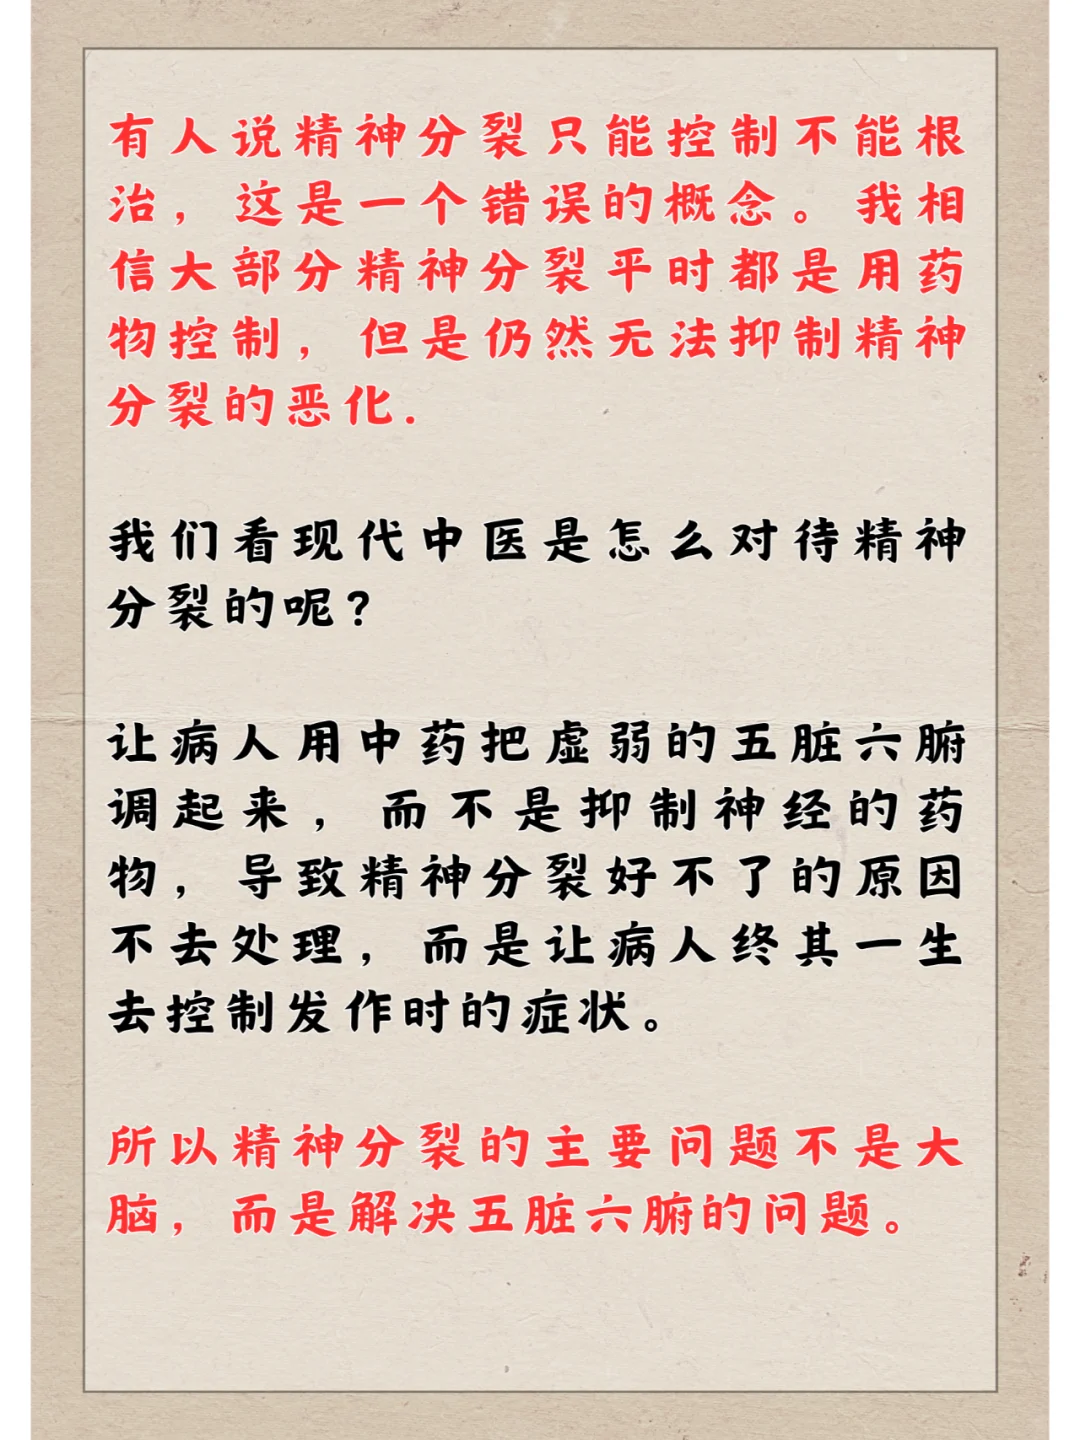 有人说精神分裂只能控制不能根
治，这是一个错误的概念。我相
信大部分精神分裂平时都是用药
物控制，但是仍然无法抑制精神
分裂的恶化.
我们看现代中医是怎么对待精神
分裂的呢?
让病人用中药把虚弱的五脏六腑
调起来，而不是抑制神经的药
物，导致精神分裂好不了的原因
不去处理，而是让病人终其一生
去控制发作时的症状。
所以精神分裂的主要问题不是大
脑，而是解决五脏六腑的问题。